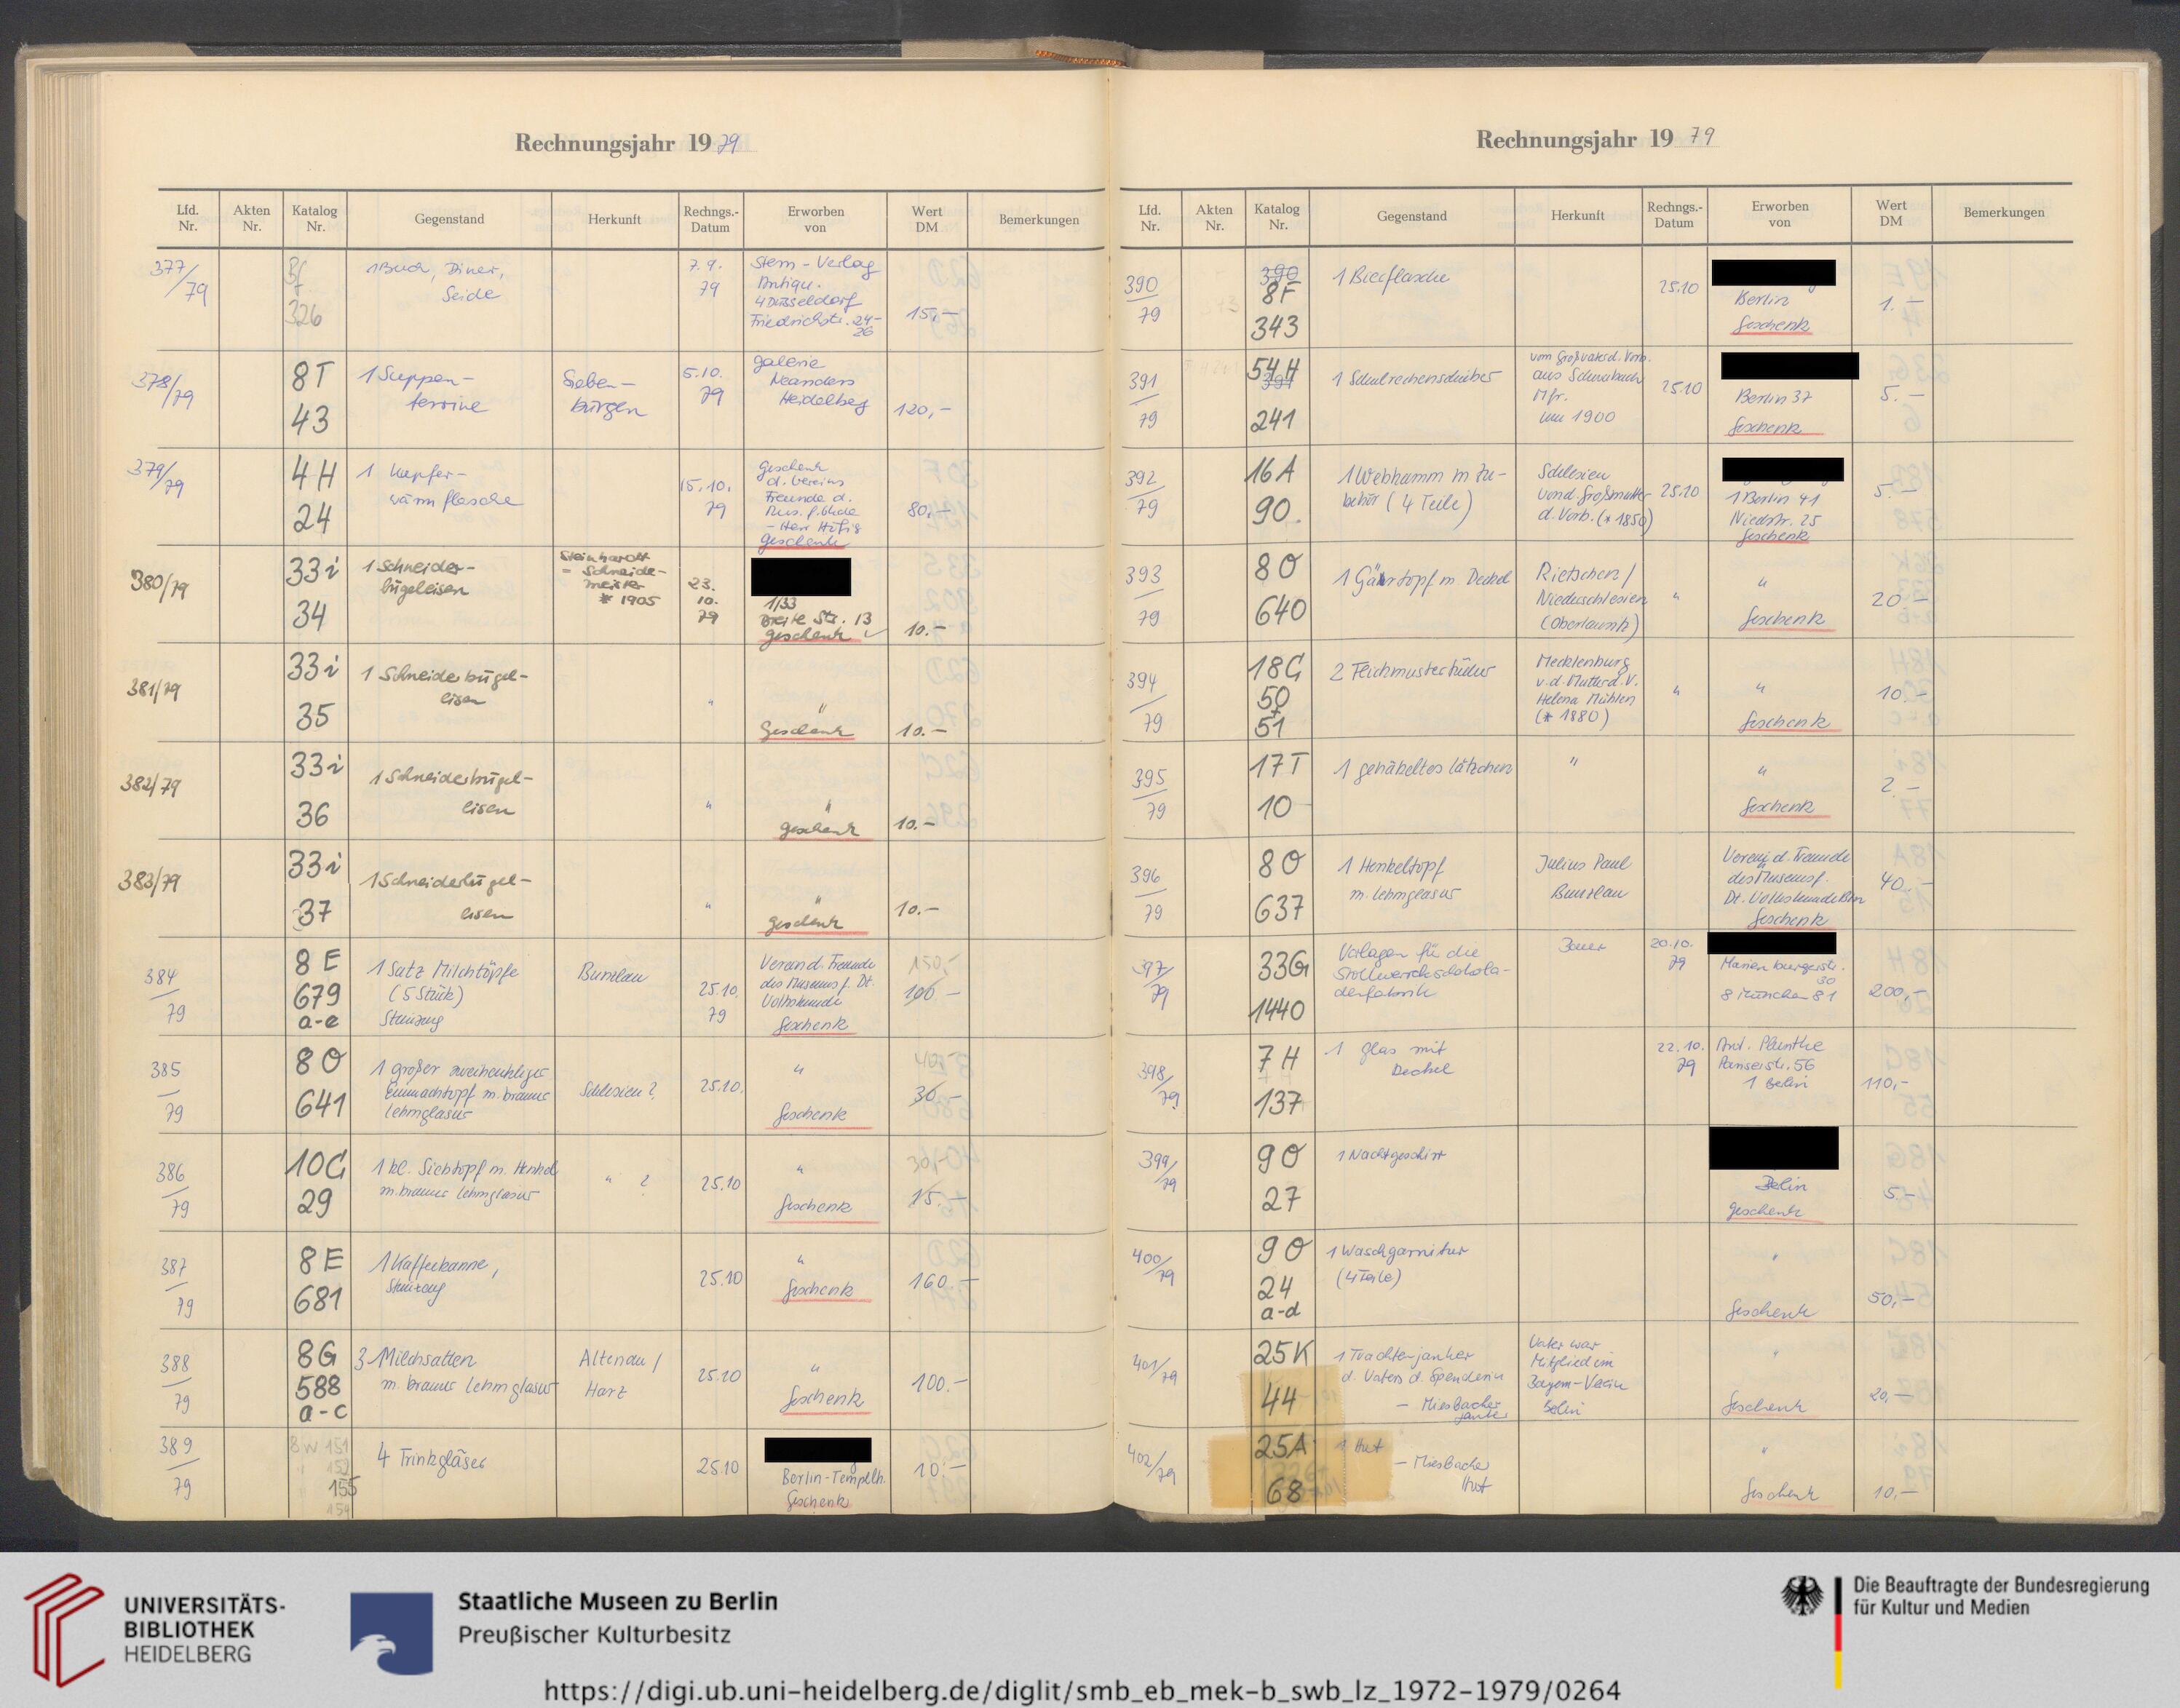 Rechnungsjahr 1979
Lfd. Nr.
Akten Nr.
Katalog Nr.
Gegenstand
Herkunft
Rechngs.-Datum
Erworben von
Wert DM
Bemerkungen
377/79
Bf
326
1 Buch, Diner,
Seide
7.9.
79
Stern-Verlag
Antiqu.
4 Düsseldorf
Friedrichstr. 24-
26
15,–
378/79
8T
43
1 Suppen-
terrine
Sieben-
bürgen
5.10.
79
Galerie
Neanders
Heidelbeg
120,–
379/79
4H
24
1 Kupfer-
wärmflasche
15.10.
79
Geschenk
d. Vereins
Freunde d.
Mus. f. Vkde
– Herr
Geschenk
80,–
380/79
33i
34
1 Schneider-
bügeleisen
Steinhardt
= Schneide-
meister
* 1905
23.
10.
79
1/33
Breite Str. 13
Geschenk
10.–
381/79
33i
35
1 Schneiderbügel-
eisen
"
"
Geschenk
10.–
382/79
33i
36
1 Schneiderbügel-
eisen
"
"
Geschenk
10.–
383/79
33i
37
1 Schneiderbügel-
eisen
"
"
Geschenk
10.–
384/79
8E
679
a-e
1 Satz Milchtöpfe
(5 Stück)
Steinzeug
Bunzlau
25.10.
79
Verein d. Freunde
des Museums f. Dt.
Volkskunde
Geschenk
150,–
100 –
385/79
8O
641
1 großer zweihenkliger
Einmachtopf m. brauner
Lehmglasur
Schlesien?
25.10.
"
Geschenk
40,–
30,–
386/79
10G
29
1 kl. Siebtopf m. Henkel
m. brauner Lehmglasur
" ?
25.10
"
Geschenk
30,–
15.–
387/79
8E
681
1 Kaffeekanne,
Steinzeug
25.10
"
Geschenk
160.–
388/79
8G
588
a-c
3 Milchsatten
m. brauner Lehmglasur
Altenau/
Harz
25.10
"
Geschenk
100.–
389/79
8W 151
152
155
154
4 Trinkgläser
25.10
Berlin-Tempelh.
Geschenk
10.–
Rechnungsjahr 1979
Lfd. Nr.
Akten Nr.
Katalog Nr.
Gegenstand
Herkunft
Rechngs.-Datum
Erworben von
Wert DM
Bemerkungen
390/79
390
8F
343
1 Bierflasche
25.10
Berlin
Geschenk
1.–
391/79
54H
391
241
1 Schulrechenschieber
vom Großvater d. Vorb.
aus Schwabach
Mfr.
um 1900
25.10
Berlin 37
Geschenk
5.–
392/79
16A
90.
1 Webkamm m Zu-
behör (4 Teile)
Schlesien
von d. Großmutter
d. Vorb. (* 1850)
25.10
1 Berlin 41
Niedstr. 25
Geschenk
5.–
393/79
8O
640
1 Gärtopf m. Deckel
Rietschen/
Niederschlesien
(Oberlausitz)
"
"
Geschenk
20–
394/79
18G
50
+
51
2 Strickmustertücher
Mecklenburg
v. d. Mutter d. V.
Helena Mühlen
(* 1880)
"
"
Geschenk
10.–
395/79
17T
10
1 gehäkeltes Lätzchen
"
"
Geschenk
2.–
396/79
8O
637
1 Henkeltopf
m. Lehmglasur
Julius Paul
Bunzlau
Verein d. Freunde
des Museums f.
Dt. Volkskunde Bln
Geschenk
40.–
397/79
33G
1440
Vorlagen für die
Stollwerckschokola-
denfabrik
20.10.
79
Marienburgerstr.
30
8 München 81
200,–
398/79
7H
137
1 Glas mit
Deckel
22.10.
79
Ant. Plinthe
Panserstr. 56
1 Berlin
110,–
399/79
9O
27
1 Nachtgeschirr
Berlin
Geschenk
5.–
400/79
9O
24
a-d
1 Waschgarnitur
(4 Teile)
"
Geschenk
50,–
401/79
25K
44
1 Trachtenjanker
d. Vaters d. Spenderin
– Miesbacher
Janker
Vater war
Mitglied im
Bayern-Verein
Berlin
"
Geschenk
20,–
402/79
25A
68
1 Hut
– Miesbacher
Hut
"
Geschenk
10,–
UNIVERSITÄTS-
BIBLIOTHEK
HEIDELBERG
Staatliche Museen zu Berlin
Preußischer Kulturbesitz
Die Beauftragte der Bundesregierung
für Kultur und Medien
https://digi.ub.uni-heidelberg.de/diglit/smb_eb_mek-b_swb_lz_1972-1979/0264